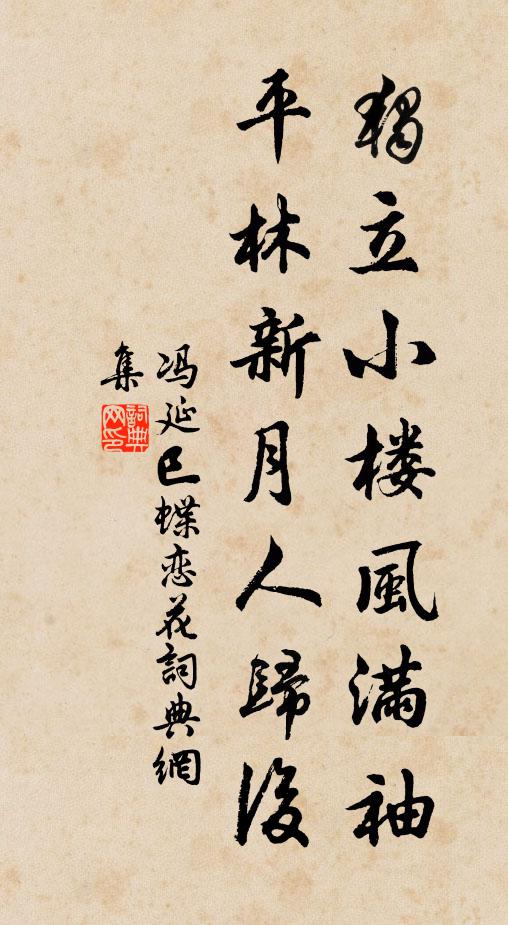 獨立小楼風满袖
平林新月人歸後
冯延巳蝶恋花詞典網
集
詞典网印